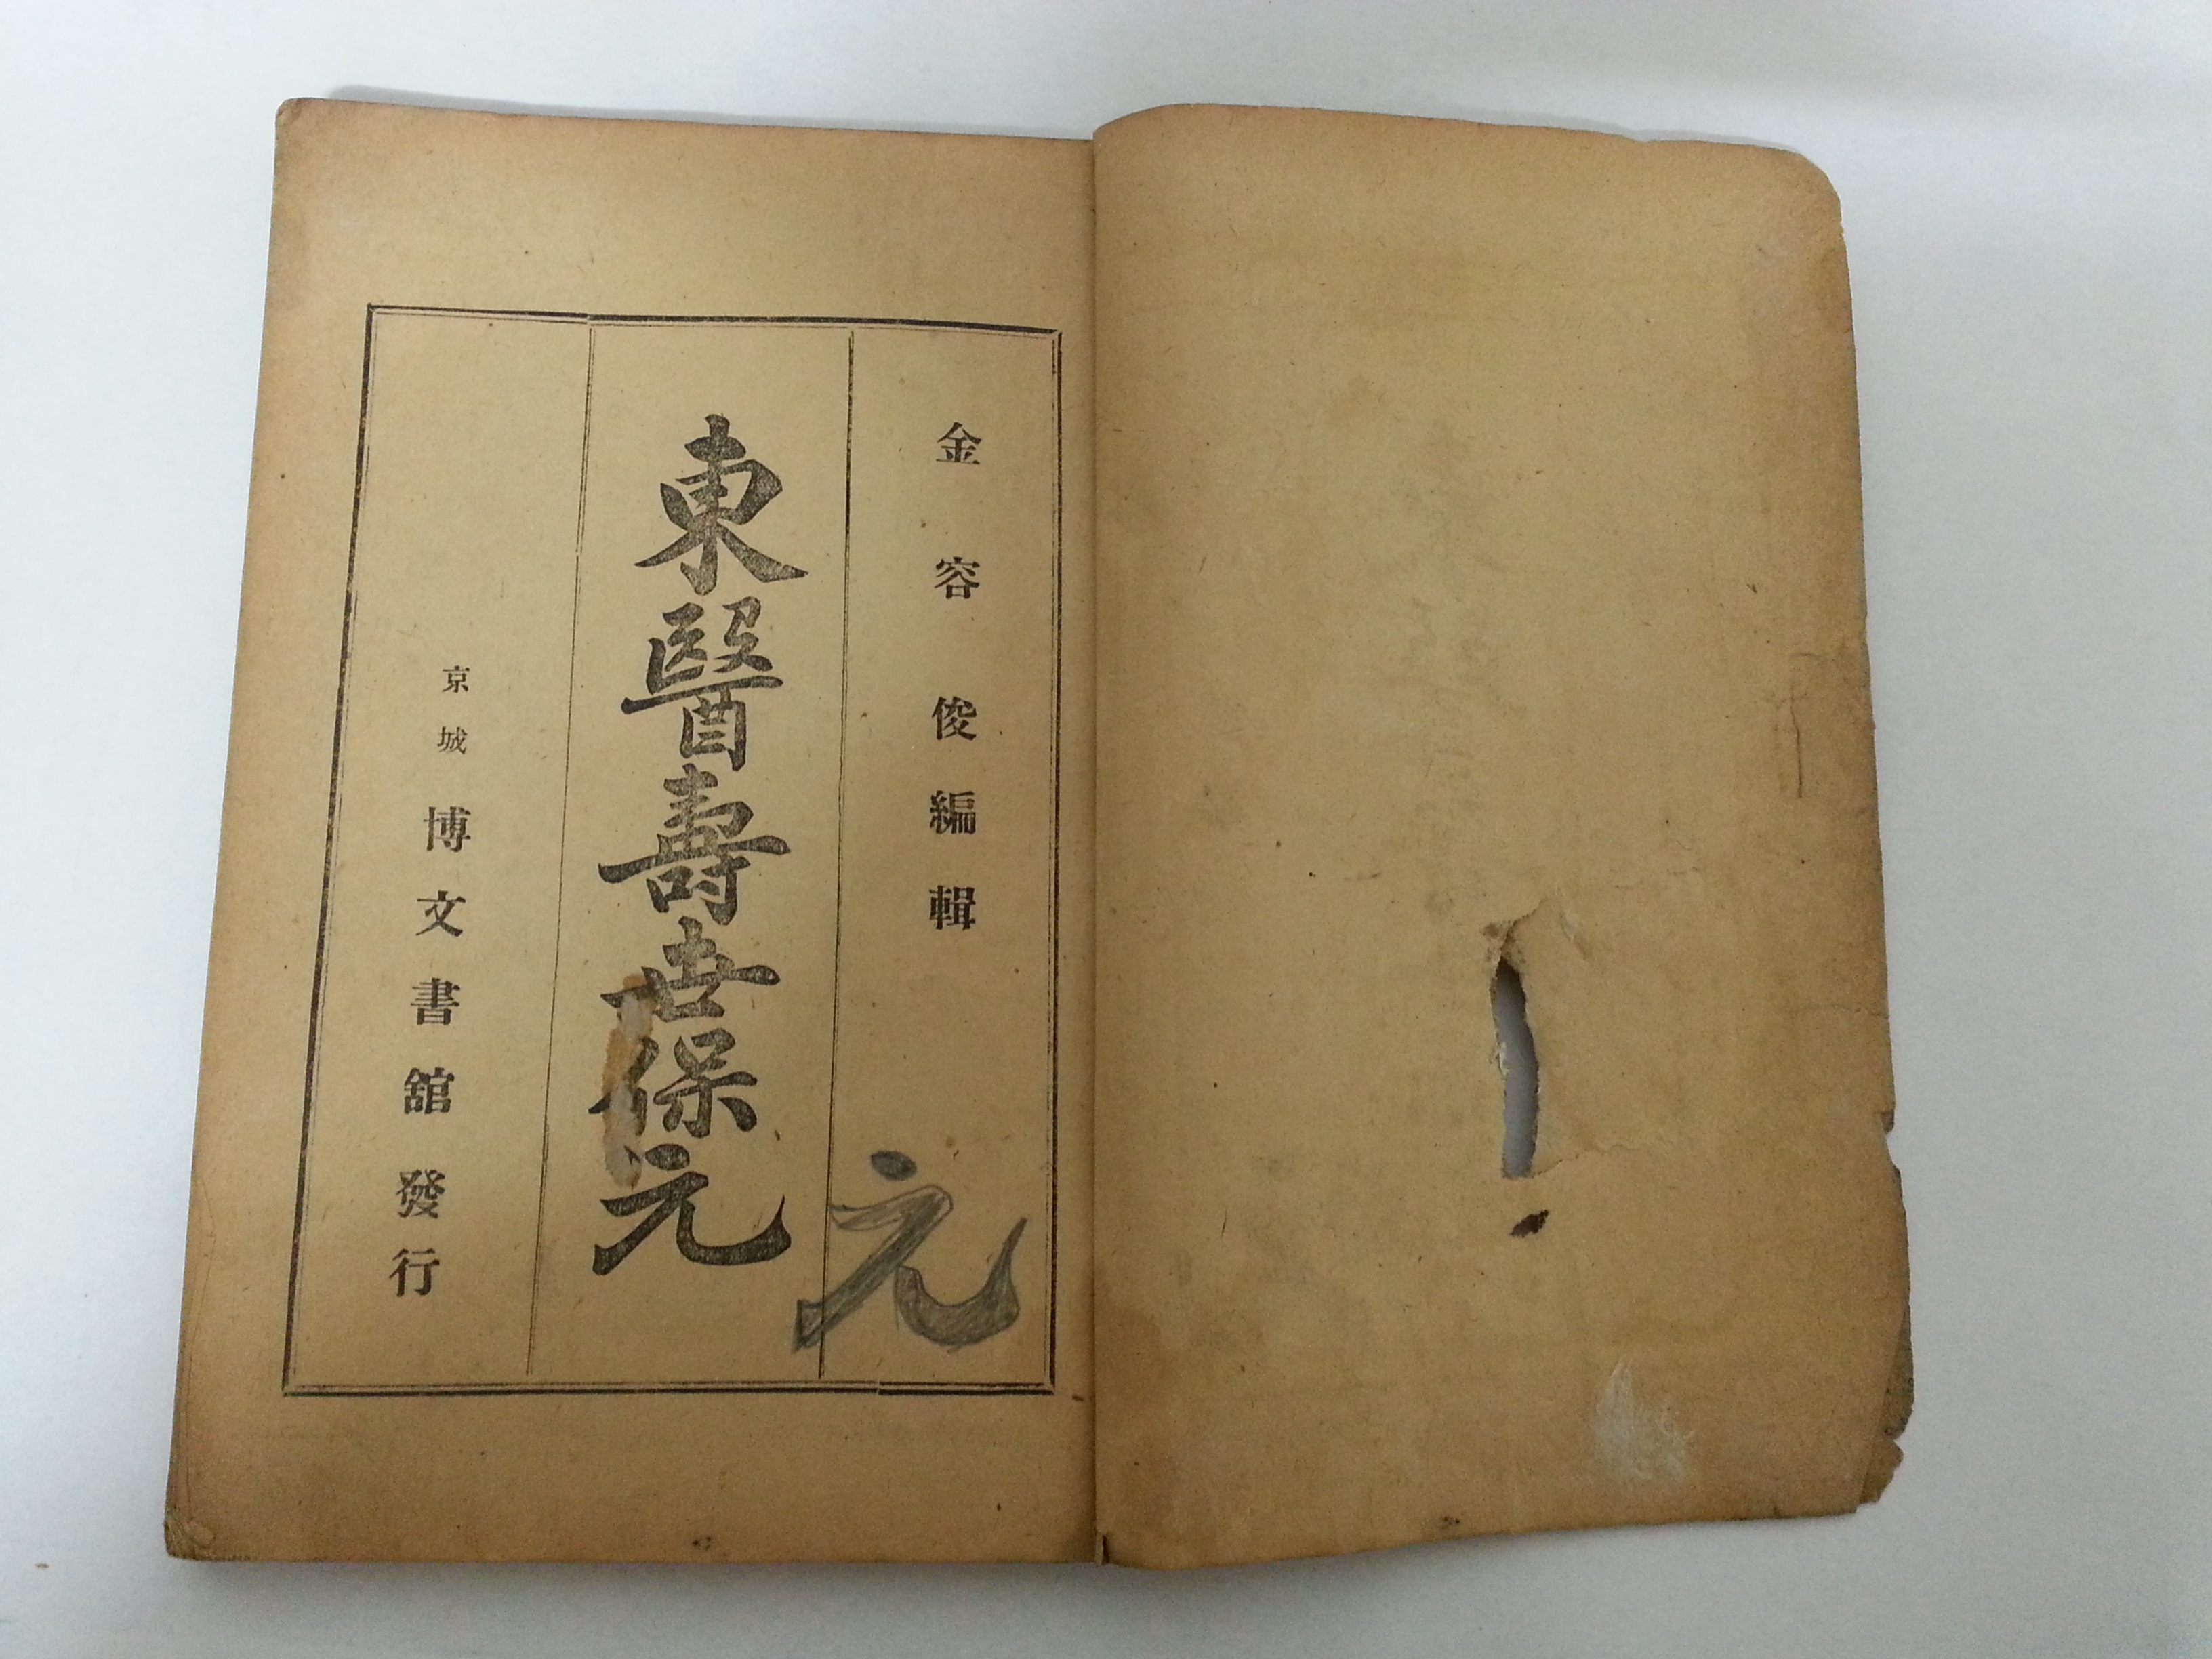 金容俊編輯
東醫壽世保元
元
京城 博文書舘發行